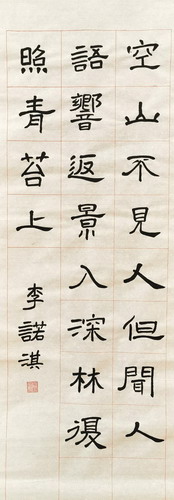 空山不見人但聞人
語響返景入深林復
照青苔上
李諾淇